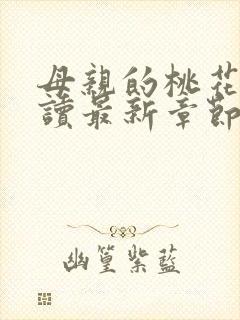 母親的桃花
讀最新章節
幽篁紫藍